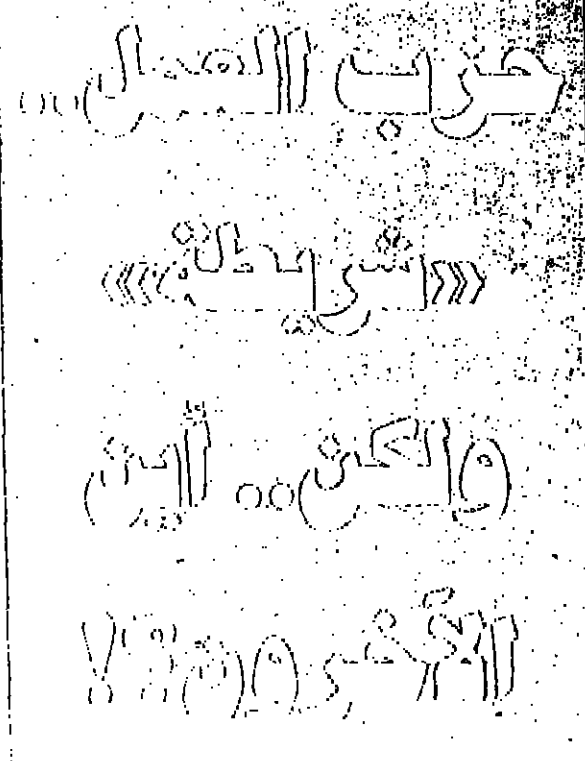 حزب العمل..
ولكن.. أين
الآخرون؟!